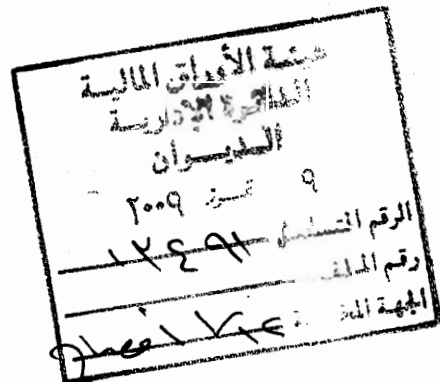 هيئة الأوراق المالية
الدائرة الإدارية
الديوان
٩ تموز ٢٠٠٩
الرقم المتسلسل ١٢٤٩١
رقم الملف
الجهة المختصة